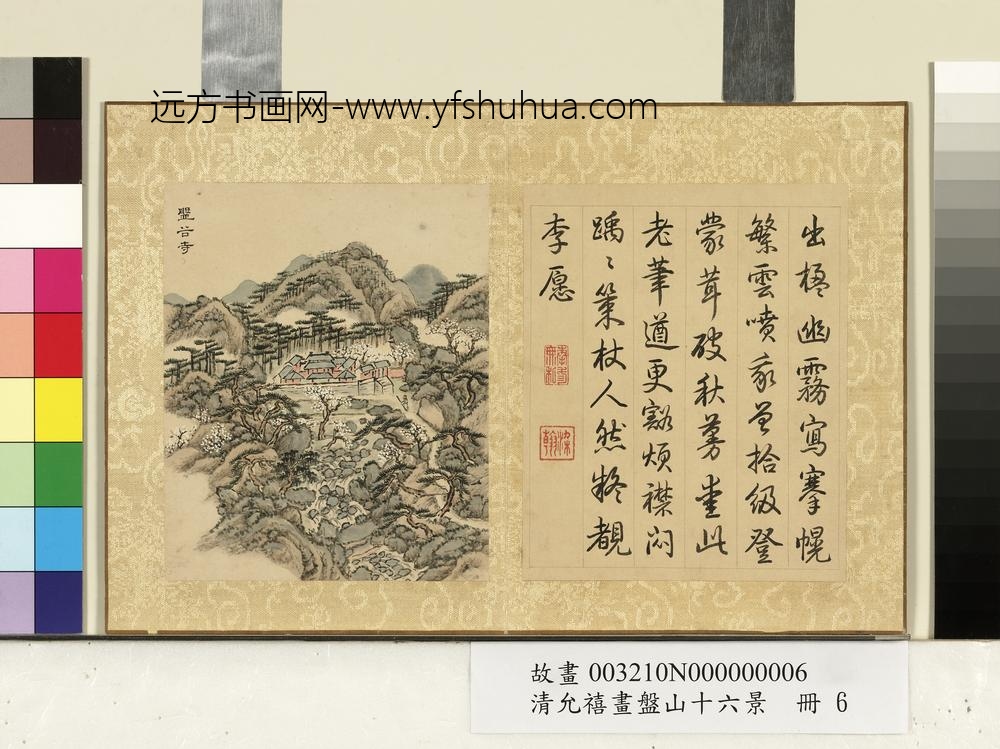 远方书画网-www.yfshuhua.com
盤谷寺
出楹幽霧寫搴幌
繁雲噴我曾拾級登
蒙茸破秋蔓此
老筆遒更豁煩襟悶
踽〻策杖人然疑覩
李愿
故畫 003210N000000006
清允禧畫盤山十六景 冊 6